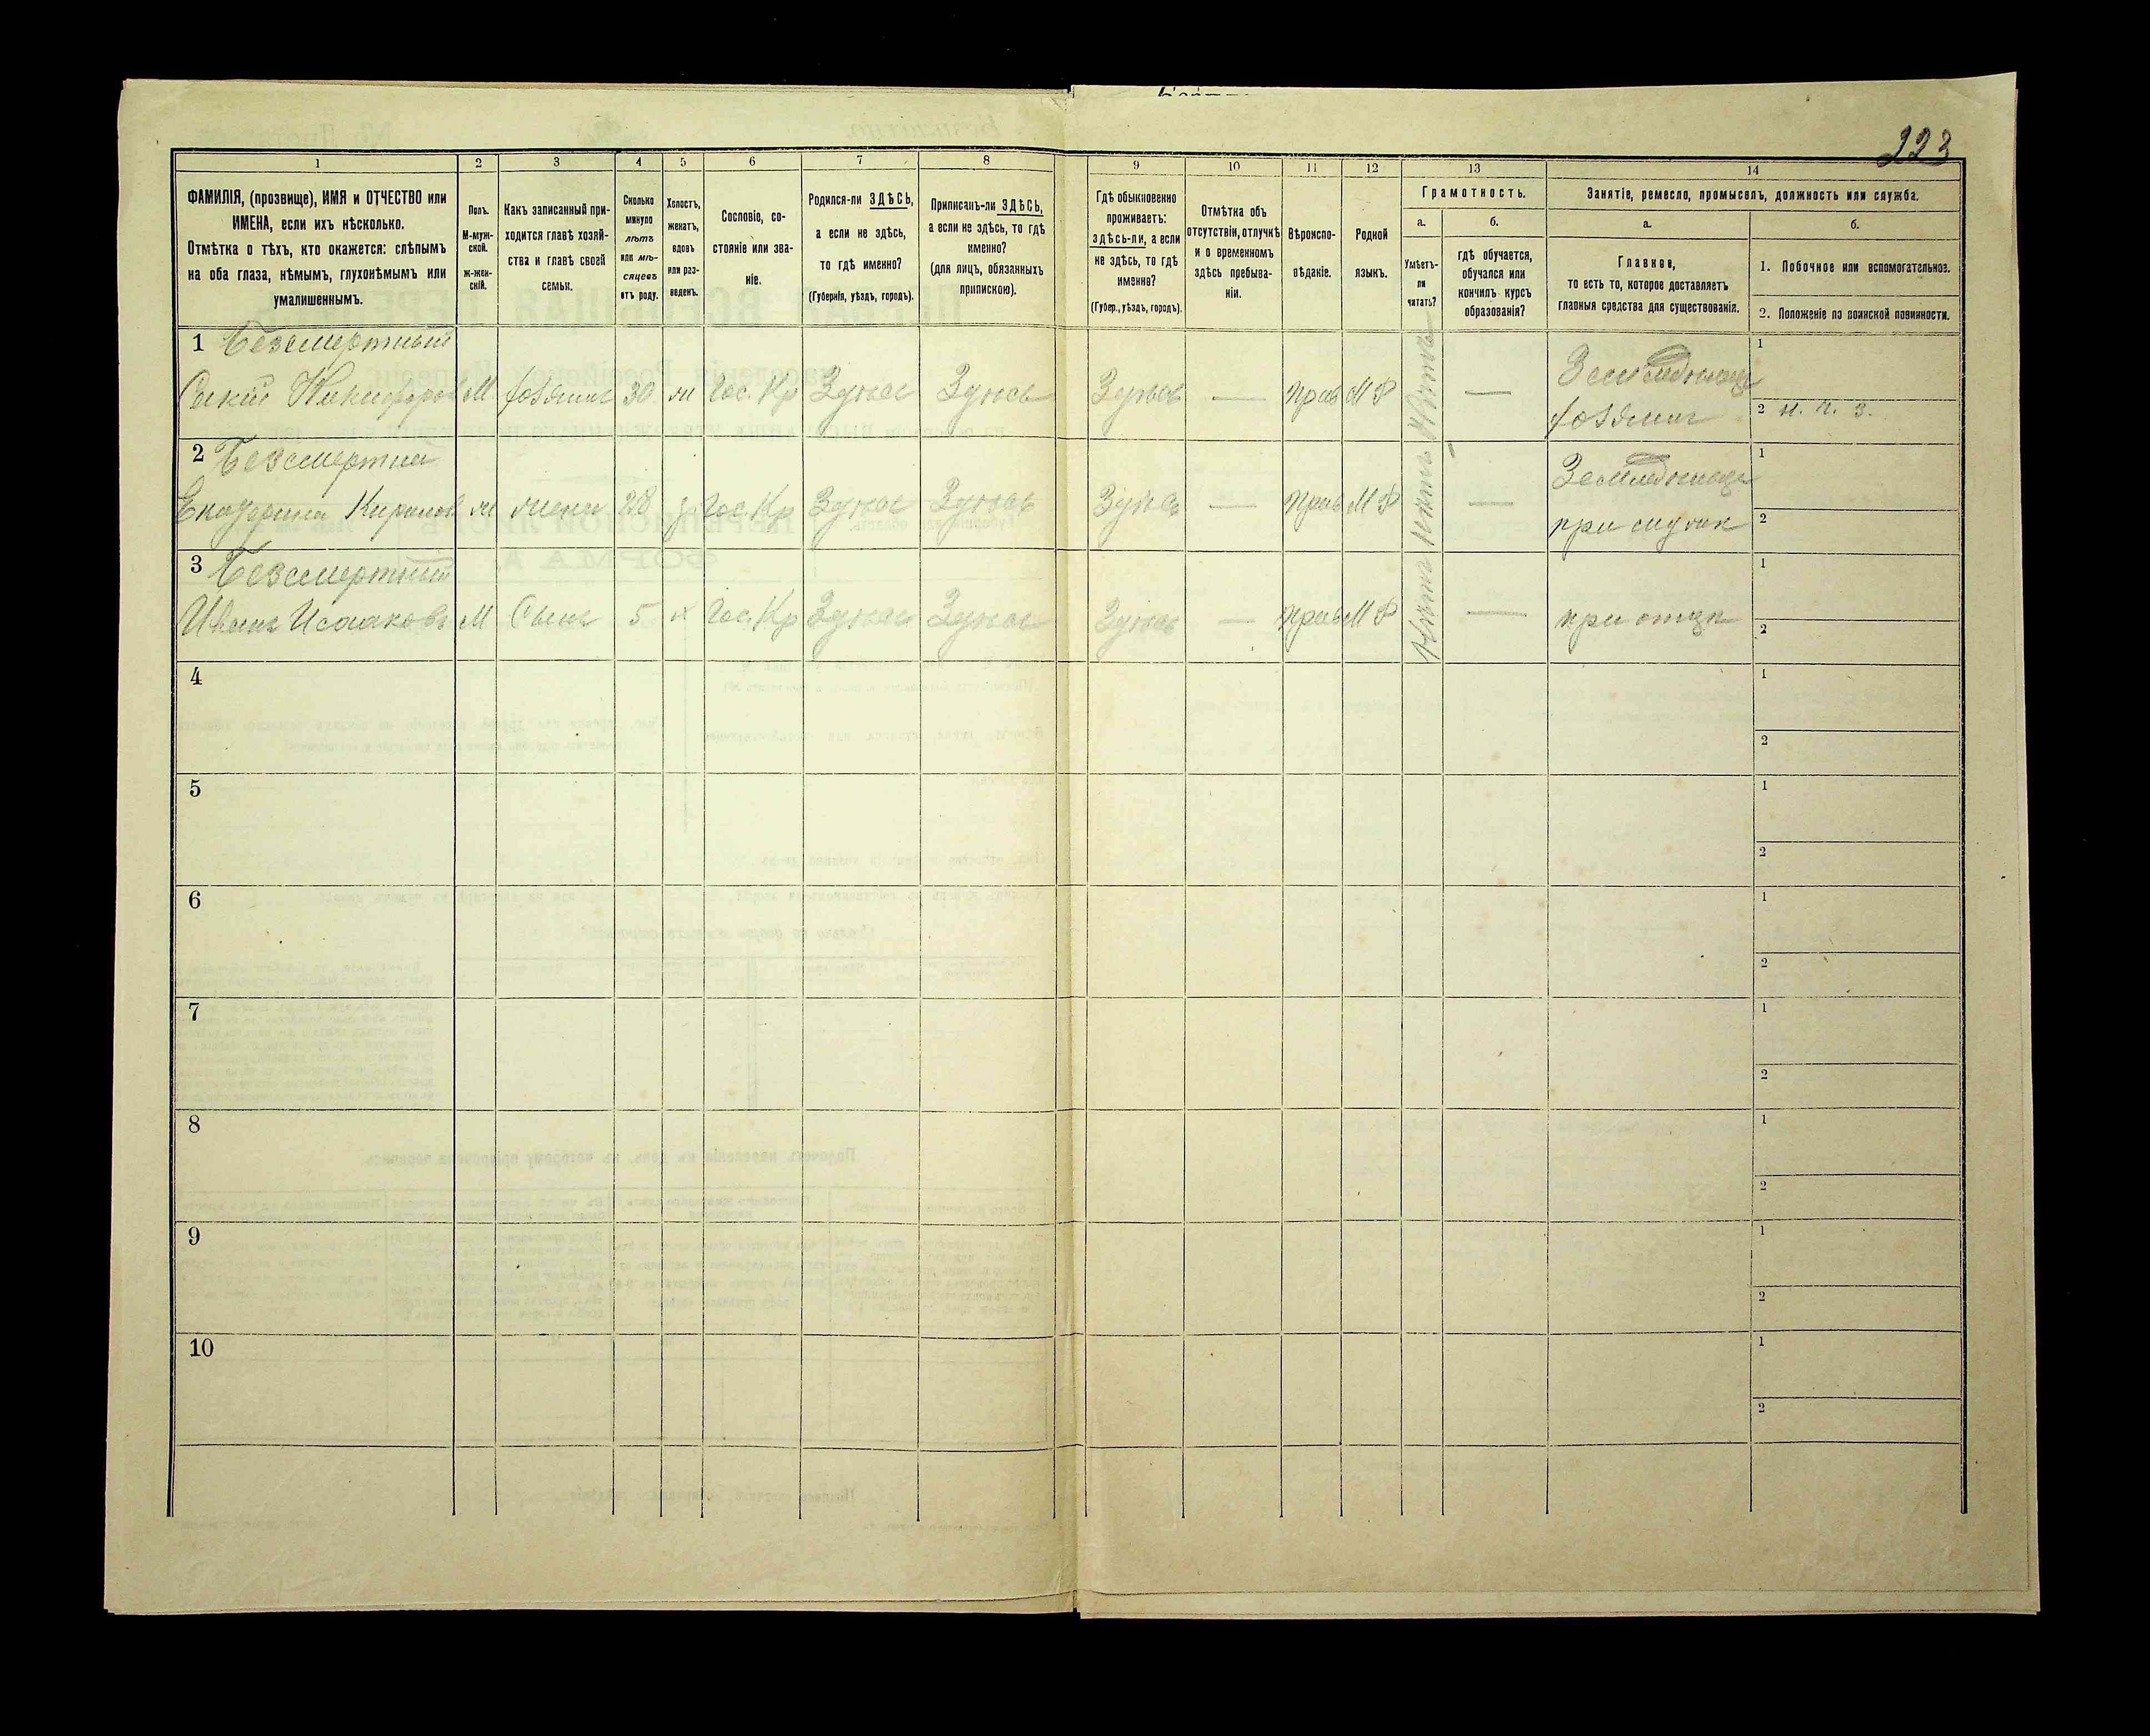 223
1
2
3
4
5
6
7
8
ФАМИЛІЯ, (прозвище), ИМЯ и ОТЧЕСТВО или
ИМЕНА, если ихъ нѣсколько.
Отмѣтка о тѣхъ, кто окажется: слѣпымъ
на оба глаза, нѣмымъ, глухонѣмымъ или
умалишеннымъ.
Полъ.
М-муж-
ской.
Ж-жен-
скій.
Какъ записанный при-
ходится главѣ хозяй-
ства и главѣ своей
семьи.
Сколько
минуло
лѣтъ
или мѣ-
сяцевъ
отъ роду.
Холостъ,
женатъ,
вдовъ
или раз-
веденъ.
Сословіе, со-
стояніе или зва-
ніе.
Родился-ли ЗДѢСЬ,
а если не здѣсь,
то гдѣ именно?
(Губернія, уѣздъ, городъ).
Приписанъ-ли ЗДѢСЬ,
а если не здѣсь, то гдѣ
именно?
(для лицъ, обязанныхъ
припискою).
9
10
11
12
13
14
Гдѣ обыкновенно
проживаетъ:
здѣсь-ли, а если
не здѣсь, то гдѣ
именно?
(Губер., уѣздъ, городъ).
Отмѣтка объ
отсутствіи, отлучкѣ
и о временномъ
здѣсь пребыва-
ніи.
Вѣроиспо-
вѣданіе.
Родной
языкъ.
Грамотность.
а.
Умѣетъ-
ли
читать?
б.
гдѣ обучается,
обучался или
кончилъ курсъ
образованія?
Занятіе, ремесло, промыселъ, должность или служба.
а.
Главное,
то есть то, которое доставляетъ
главныя средства для существованія.
б.
1. Побочное или вспомогательное.
2. Положеніе по воинской повинности.
1 Безсмертный
М хозяинъ 30 Гос. Кр Здѣсь Здѣсь Здѣсь — прав М Р — хозяинъ
1
2 н. ч. з.
2 Безсмертна
Екатерина жена 28 Гос. Кр Здѣсь Здѣсь Здѣсь — прав М Р —
1
2
3 Безсмертный
Иванъ Исааковъ М Сынъ 5 х Гос. Кр Здѣсь Здѣсь Здѣсь — прав М Р — при отцѣ
1
2
Нѣтъ Нѣтъ Нѣтъ
4
1
2
5
1
2
6
1
2
7
1
2
8
1
2
9
1
2
10
1
2